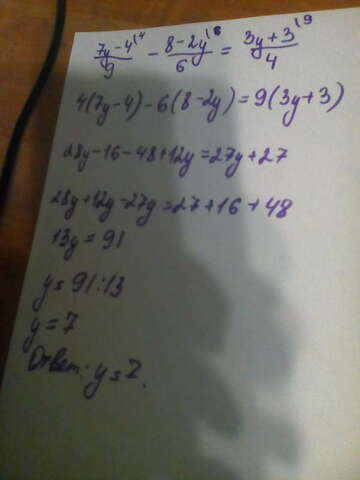 (7y-4)/9 ⁽⁴ - (8-2y)/6 ⁽⁶ = (3y+3)/4 ⁽⁹
4(7y-4)-6(8-2y)=9(3y+3)
28y-16-48+12y=27y+27
28y+12y-27y=27+16+48
13y=91
y=91:13
y=7
Ответ: y=7.